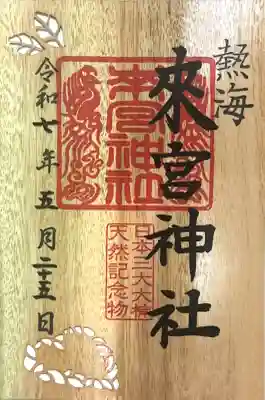 熱海
來宮神社
來宮神社
日本三大大楠
天然記念物
令和七年五月二十五日